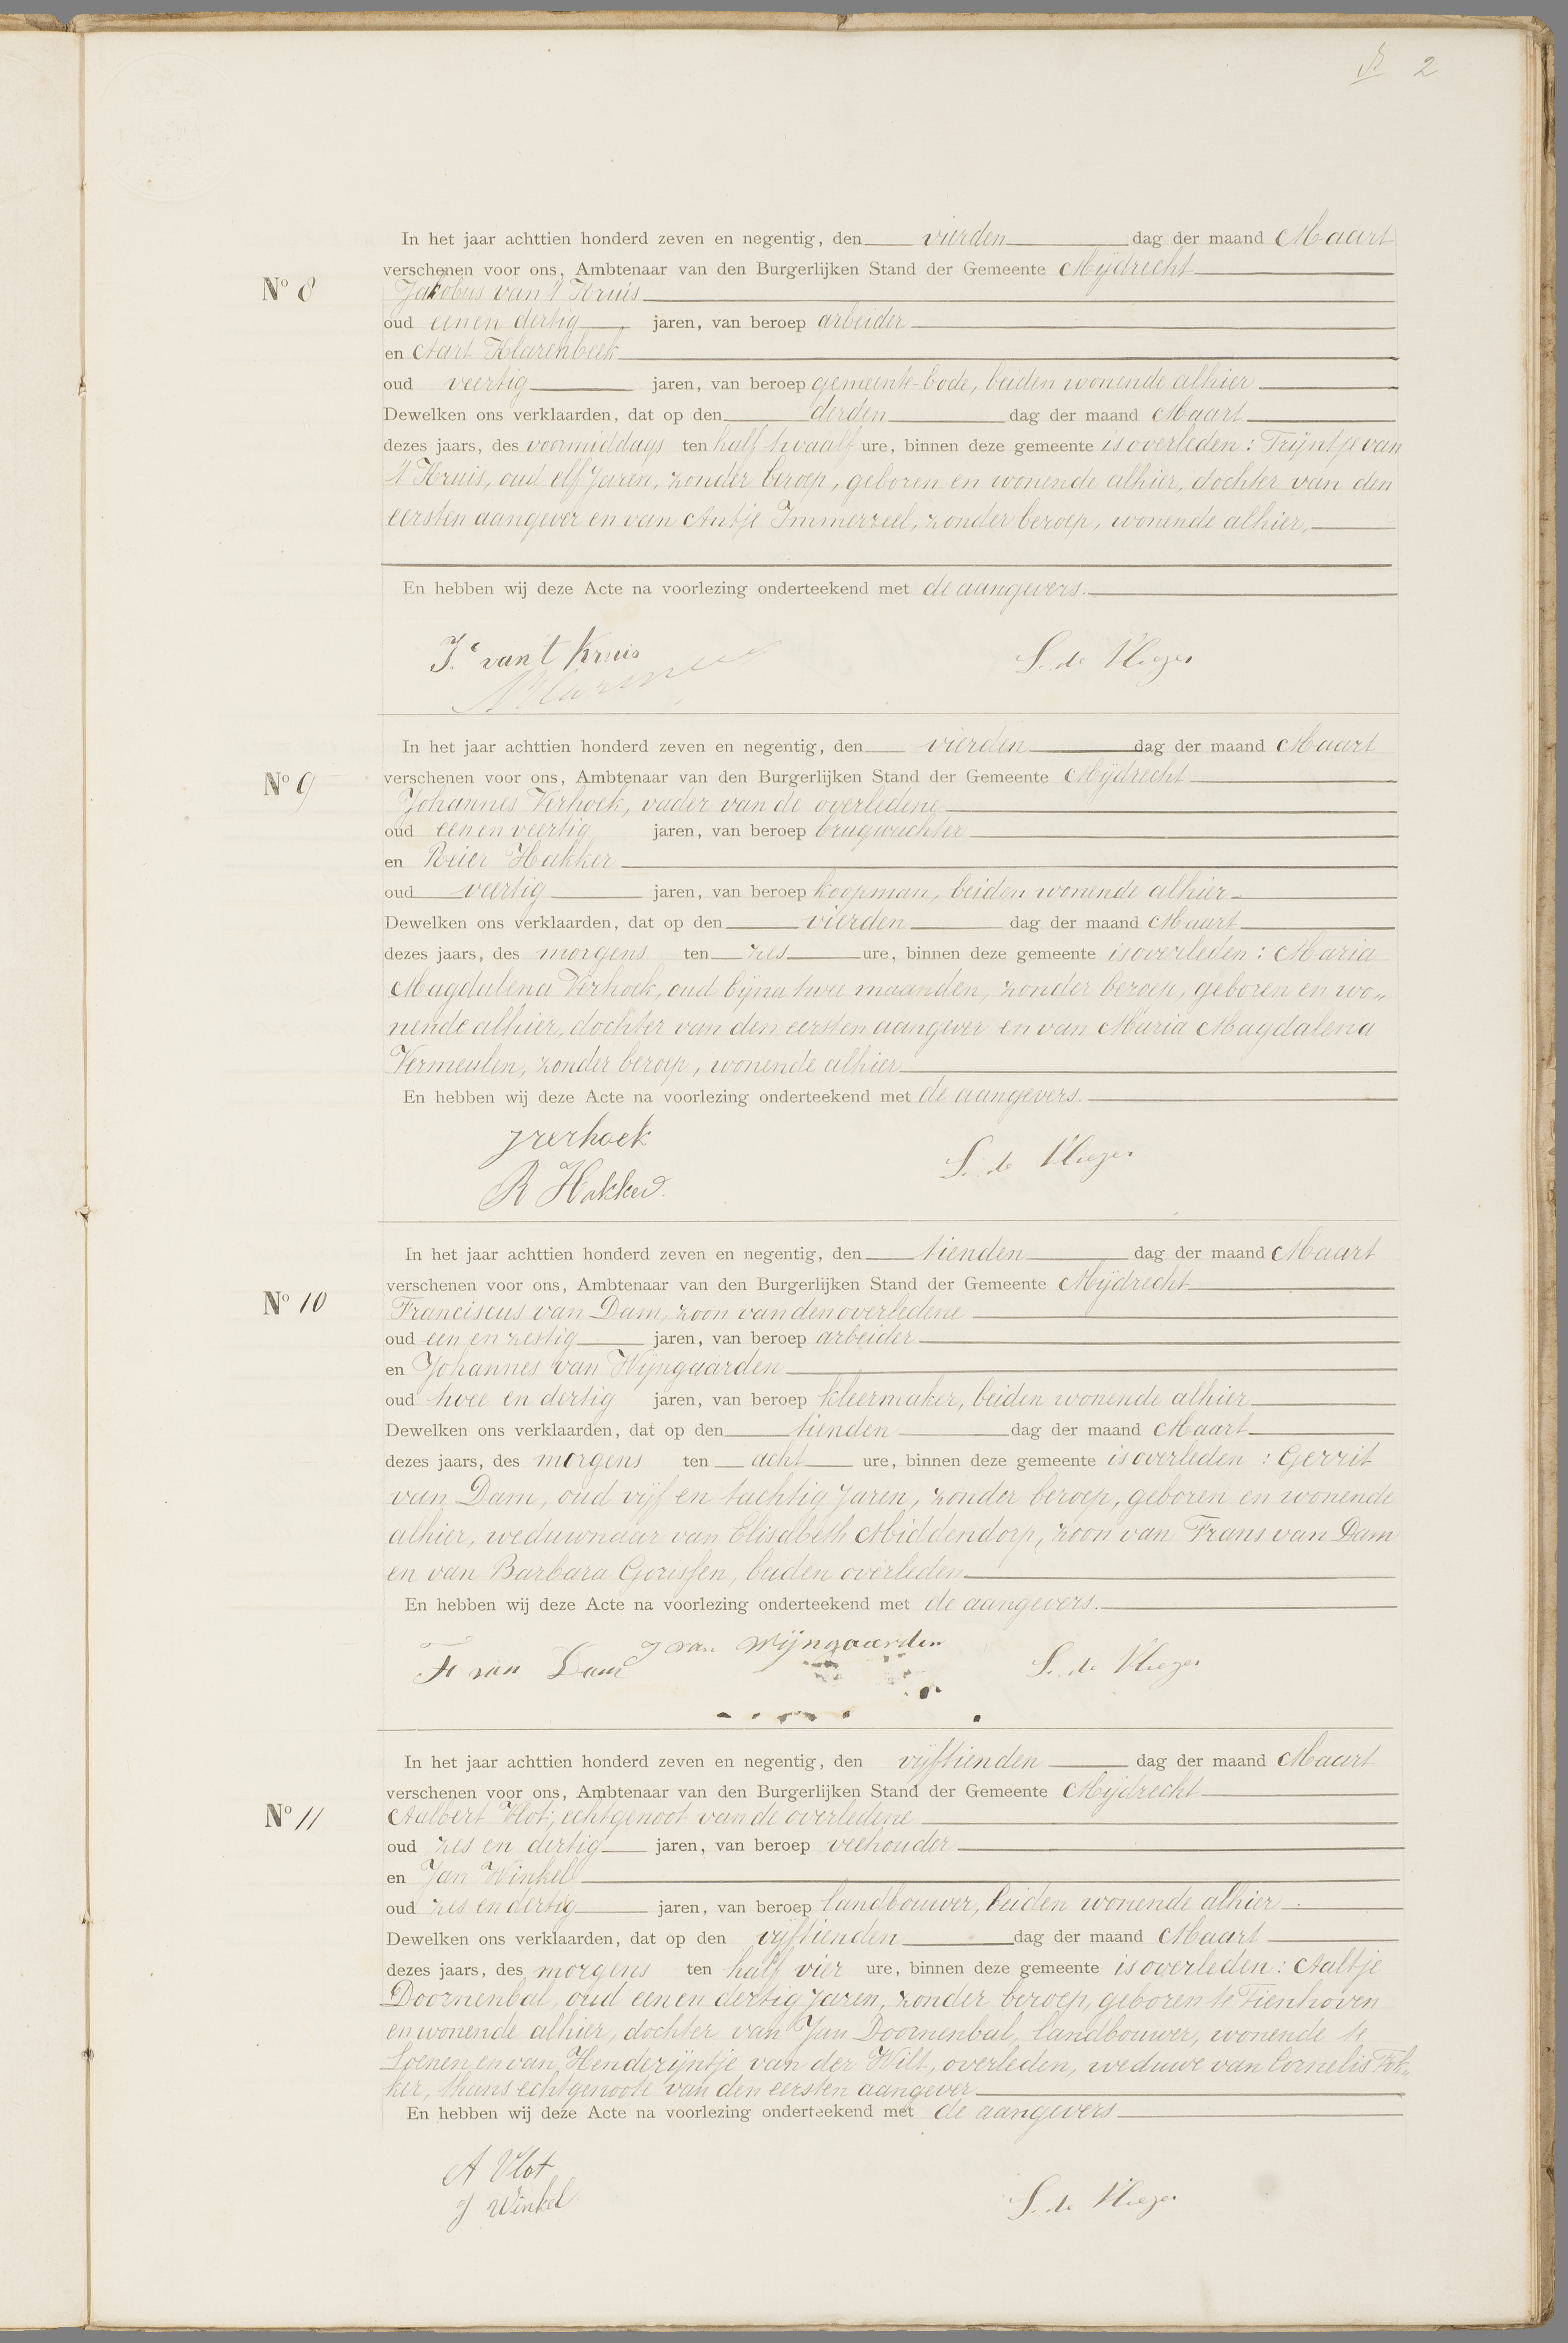 2
In het jaar achttien honderd zeven en negentig, den vierden dag der maand Maart
verschenen voor ons, Ambtenaar van den Burgerlijken Stand der Gemeente Mijdrecht
No 8
Jakobus van 't Kruis
oud een en dertig jaren, van beroep arbeider
en Aart Klarenbeek
oud veertig jaren, van beroep gemeente-bode, beiden wonende alhier
Dewelken ons verklaarden, dat op den derden dag der maand Maart
dezes jaars, des voormiddags ten half twaalf ure, binnen deze gemeente is overleden: Trijntje van
't Kruis, oud elf jaren, zonder beroep, geboren en wonende alhier, dochter van den
eersten aangever en van Antje Immerzeel, zonder beroep, wonende alhier,
En hebben wij deze Acte na voorlezing onderteekend met de aangevers.
Js van t Kruis
S. de Vlieger
In het jaar achttien honderd zeven en negentig, den vierden dag der maand Maart
verschenen voor ons, Ambtenaar van den Burgerlijken Stand der Gemeente Mijdrecht
No 9
Johannes Verhoek, vader van de overledene
oud een en veertig jaren, van beroep brugwachter
en Reier Hakker
oud veertig jaren, van beroep koopman, beiden wonende alhier
Dewelken ons verklaarden, dat op den vierden dag der maand Maart
dezes jaars, des morgens ten zes ure, binnen deze gemeente is overleden: Maria
Magdalena Verhoek, oud bijna twee maanden, zonder beroep, geboren en wo„
nende alhier, dochter van den eersten aangever en van Maria Magdalena
Vermeulen, zonder beroep, wonende alhier
En hebben wij deze Acte na voorlezing onderteekend met de aangevers.
J verhoek
S. de Vlieger
R Hakker.
In het jaar achttien honderd zeven en negentig, den tienden dag der maand Maart
verschenen voor ons, Ambtenaar van den Burgerlijken Stand der Gemeente Mijdrecht
No 10
Franciscus van Dam, zoon van den overledene
oud een en zestig jaren, van beroep arbeider
en Johannes van Wijngaarden
oud twee en dertig jaren, van beroep kleermaker, beiden wonende alhier
Dewelken ons verklaarden, dat op den tienden dag der maand Maart
dezes jaars, des morgens ten acht ure, binnen deze gemeente is overleden: Gerrit
van Dam, oud vijf en tachtig jaren, zonder beroep, geboren en wonende
alhier, weduwnaar van Elisabeth Middendorp, zoon van Frans van Dam
en van Barbara Gorissen, beiden overleden
En hebben wij deze Acte na voorlezing onderteekend met de aangevers.
J van Wijngaarden
F van Dam
S. de Vlieger
In het jaar achttien honderd zeven en negentig, den vijftienden dag der maand Maart
verschenen voor ons, Ambtenaar van den Burgerlijken Stand der Gemeente Mijdrecht
No 11
Aalbert Vlot, echtgenoot van de overledene
oud zes en dertig jaren, van beroep veehouder
en Jan Winkel
oud zes en dertig jaren, van beroep landbouwer, beiden wonende alhier
Dewelken ons verklaarden, dat op den vijftienden dag der maand Maart
dezes jaars, des morgens ten half vier ure, binnen deze gemeente is overleden: Aaltje
Doornenbal, oud een en dertig jaren, zonder beroep, geboren te Tienhoven
en wonende alhier, dochter van Jan Doornenbal, landbouwer, wonende te
Loenen en van Henderijntje van der Wilt, overleden, weduwe van Cornelis
ker, thans echtgenoote van den eersten aangever
En hebben wij deze Acte na voorlezing onderteekend met de aangevers
A Vlot
J Winkel
S. de Vlieger